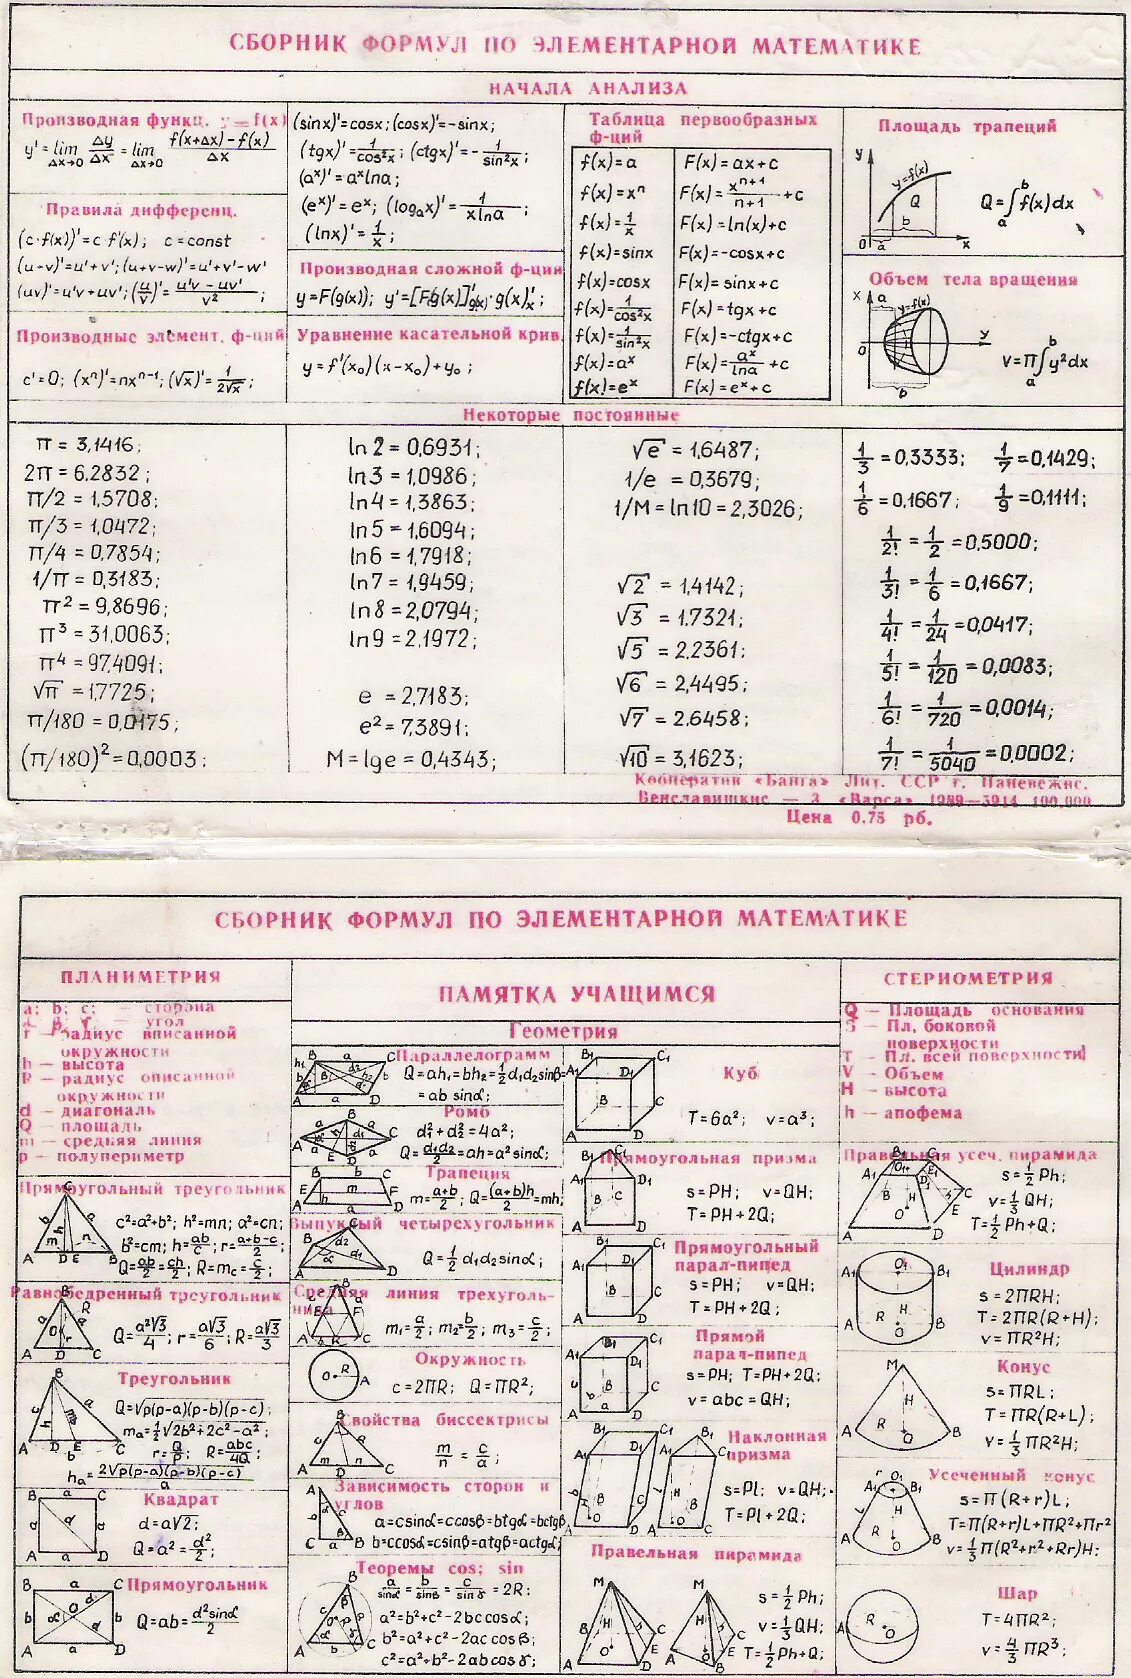 СБОРНИК ФОРМУЛ ПО ЭЛЕМЕНТАРНОЙ МАТЕМАТИКЕ
НАЧАЛА АНАЛИЗА
Производная функц. y = f(x)
y' = lim Δx→0 Δy/Δx = lim Δx→0 (f(x+Δx) - f(x))/Δx
Правила дифференц.
(c·f(x))' = c·f'(x); c = const
(u-v)' = u'+v'; (u+v-w)' = u'+v'-w'
(uv)' = u'v + uv'; (u/v)' = (u'v - uv')/v²;
Производные элемент. ф-ций
c' = 0; (xⁿ)' = nxⁿ⁻¹; (√x)' = 1/2√x;
(sinx)' = cosx; (cosx)' = -sinx;
(tgx)' = 1/cos²x; (ctgx)' = -1/sin²x;
(aˣ)' = aˣlna;
(eˣ)' = eˣ; (logₐx)' = 1/xlna;
(lnx)' = 1/x;
Производная сложной ф-ции
y = F(g(x)); y' = [F(g(x)]'g(x)·g(x)'x;
Уравнение касательной крив.
y = f'(x₀)(x-x₀)+y₀;
Таблица первообразных
ф-ций
f(x) = a F(x) = ax+c
f(x) = xⁿ F(x) = xⁿ⁺¹/n+1 + c
f(x) = 1/x F(x) = ln(x)+c
f(x) = sinx F(x) = -cosx+c
f(x) = cosx F(x) = sinx+c
f(x) = 1/cos²x F(x) = tgx+c
f(x) = 1/sin²x F(x) = -ctgx+c
f(x) = aˣ F(x) = aˣ/lna + c
f(x) = eˣ F(x) = eˣ+c
Площадь трапеций
y
y=f(x)
Q
b
0 a x
Q = ∫ₐᵇ f(x)dx
Объем тела вращения
x a
y=f(x)
0 y
b
V = π∫ₐᵇ y²dx
Некоторые постоянные
π = 3,1416;
2π = 6,2832;
π/2 = 1,5708;
π/3 = 1,0472;
π/4 = 0,7854;
1/π = 0,3183;
π² = 9,8696;
π³ = 31,0063;
π⁴ = 97,4091;
√π = 1,7725;
π/180 = 0,0175;
(π/180)² = 0,0003;
ln2 = 0,6931;
ln3 = 1,0986;
ln4 = 1,3863;
ln5 = 1,6094;
ln6 = 1,7918;
ln7 = 1,9459;
ln8 = 2,0794;
ln9 = 2,1972;
e = 2,7183;
e² = 7,3891;
M = lge = 0,4343;
√e = 1,6487;
1/e = 0,3679;
1/M = ln10 = 2,3026;
√2 = 1,4142;
√3 = 1.7321;
√5 = 2.2361;
√6 = 2,4495;
√7 = 2.6458;
√10 = 3,1623;
1/3 = 0,3333; 1/7 = 0,1429;
1/6 = 0,1667; 1/9 = 0,1111;
1/2! = 1/2 = 0,5000;
1/3! = 1/6 = 0,1667;
1/4! = 1/24 = 0,0417;
1/5! = 1/120 = 0,0083;
1/6! = 1/720 = 0,0014;
1/7! = 1/5040 = 0,0002;
Кооператив «Банга» Лит. ССР г. Паневежис.
Венславишкис — 3 «Варса» 1989—3914 100.000
Цена 0,75 рб.
СБОРНИК ФОРМУЛ ПО ЭЛЕМЕНТАРНОЙ МАТЕМАТИКЕ
ПЛАНИМЕТРИЯ
a; b; c; — сторона
β, γ — угол
r — радиус вписанной
окружности
h — высота
R — радиус описанной
окружности
d — диагональ
Q — площадь
m — средняя линия
p — полупериметр
Прямоугольный треугольник
c²=a²+b²; h²=mn; a²=cn;
b²=cm; h=ab/c; r=(a+b-c)/2;
Q=ab/2=ch/2; R=mc=c/2;
Равнобедренный треугольник
Q=a²√3/4; r=a√3/6; R=a√3/3
Треугольник
Q=√p(p-a)(p-b)(p-c);
mₐ=1/2√2b²+2c²-a²;
r=Q/p; R=abc/4Q;
hₐ=2√p(p-a)(p-b)(p-c)/a
Квадрат
d=a√2;
Q=a²=d²/2;
Прямоугольник
Q=ab=d²sinα/2
ПАМЯТКА УЧАЩИМСЯ
Геометрия
Параллелограмм
Q=ah₁=bh₂=1/2d₁d₂sinβ=
=ab sinα;
Ромб
d₁²+d₂²=4a²;
Q=d₁d₂/2=ah=a²sinα;
Трапеция
m=(a+b)/2; Q=(a+b)h/2=mh;
Выпуклый четырехугольник
Q=1/2 d₁d₂sinα;
Средняя линия трехуголь-
ника
m₁=a/2; m₂=b/2; m₃=c/2;
Окружность
c=2πR; Q=πR²;
Свойства биссектрисы
m/n=c/a;
Зависимость сторон и
углов
a=csinα=ccosβ=btgα=bctgβ
b=ccosα=csinβ=atgβ=actgα;
Теоремы cos; sin
a/sinα=b/sinβ=c/sinγ=2R;
a²=b²+c²-2bccosα;
b²=a²+c²-2ac cosβ;
c²=a²+b²-2ab cosγ;
Куб
T=6a²; v=a³;
Прямоугольная призма
s=PH; v=QH;
T=PH+2Q;
Прямоугольный
парал-пипед
s=PH; v=QH;
T=PH+2Q;
Прямой
парал-пипед
s=PH; T=PH+2Q;
v=abc=QH;
Наклонная
призма
s=Pl; v=QH;
T=Pl+2Q;
Правельная пирамида
s=1/2Ph;
v=1/3QH;
T=1/2Ph+Q;
СТЕРИОМЕТРИЯ
Q — Площадь основания
S — Пл. боковой
поверхности
T — Пл. всей поверхности
V — Объем
H — высота
h — апофема
Правельная усеч. пирамида
s=1/2Ph;
v=1/3QH;
T=1/2Ph+Q;
Цилиндр
s=2πRH;
T=2πR(R+H);
v=πR²H;
Конус
s=πRL;
T=πR(R+L);
v=1/3πR²H;
Усеченный конус
s=π(R+r)L;
T=π(R+r)L+πR²+πr²
v=1/3π(R²+r²+Rr)H;
Шар
T=4πR²;
v=4/3πR³;